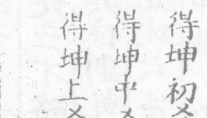 得坤初爻
得坤中爻
得坤上爻